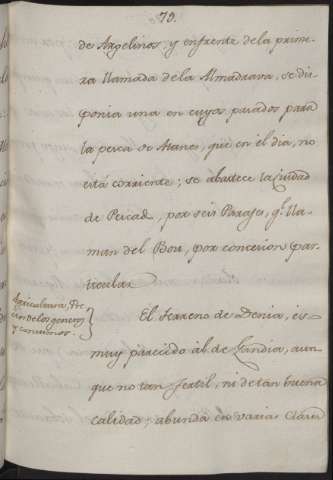 79.
de Argelinos, y enfrente de la prime-
ra llamada de la Almadrava, se dis-
ponia una en cuyos parados para
la pesca de Atunes, que en el dia, no
está corriente; se abastece la Ciudad
de Pescad, por seis Parajes, q.e lla-
man del Bou, por concesion par-
ticular.
Agricultura, Pre-
cios de los generos
y consumos.
El terreno de Denia, es
muy parecido al de Gandia, aun
que no tan fertil, ni de tan buena
calidad; abunda en varias clases